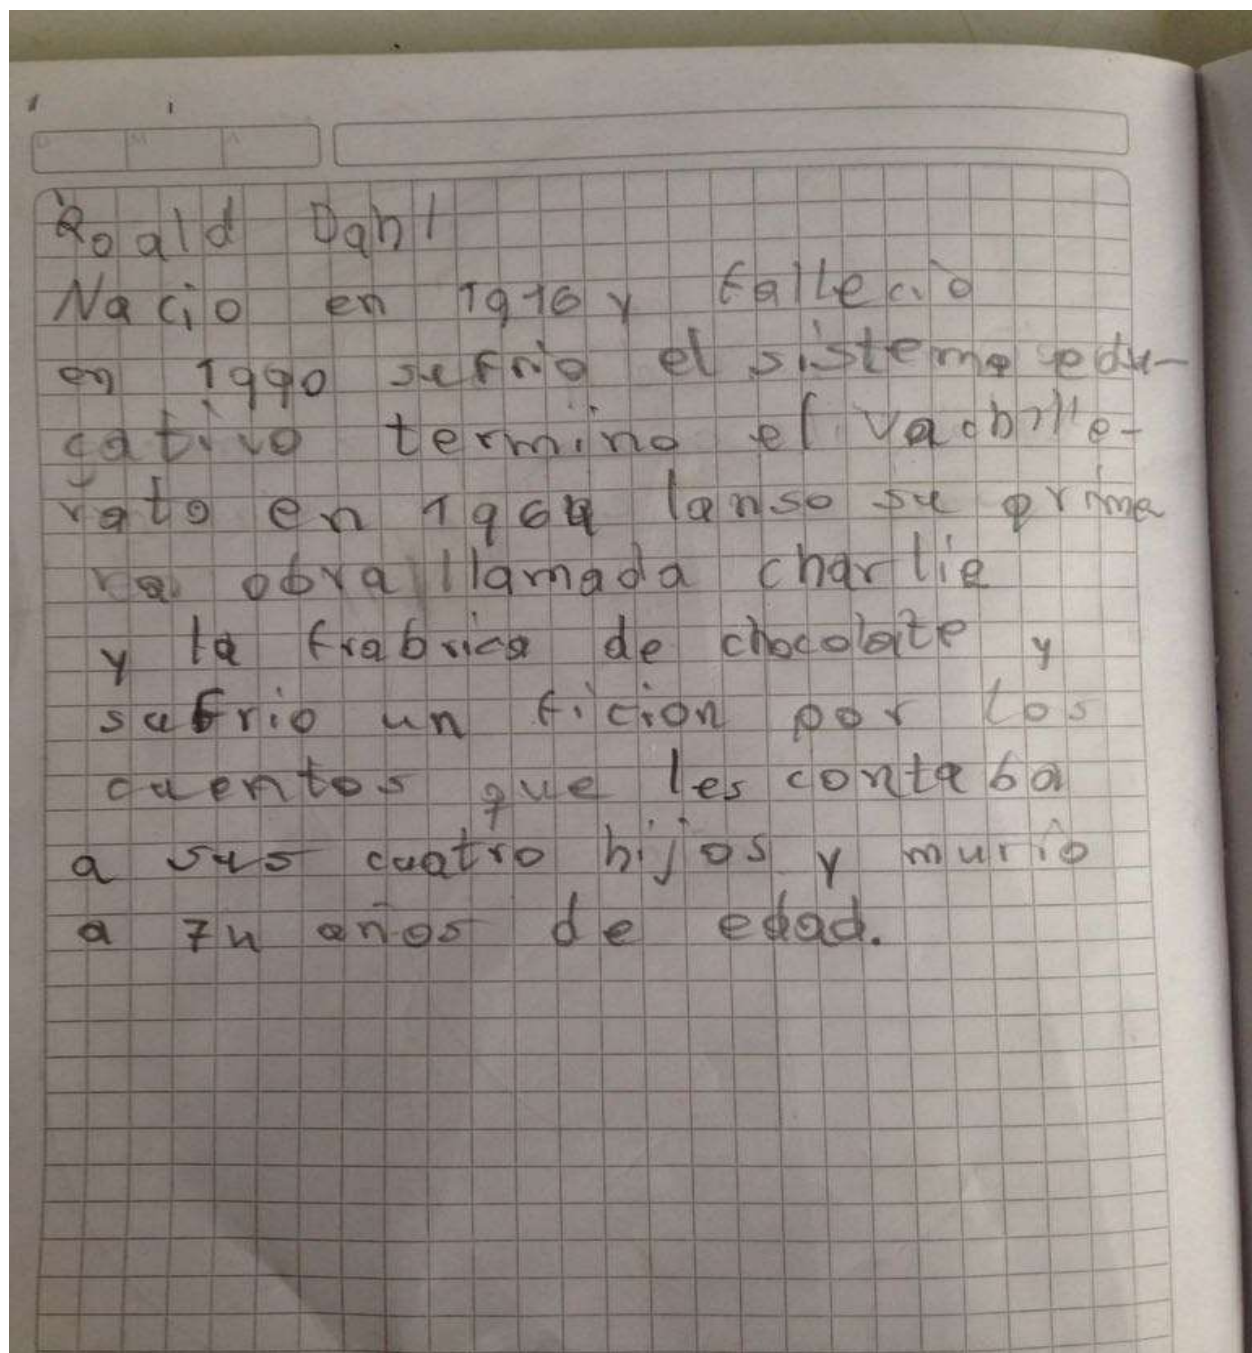 Roald Dahl
Nacio en 1916 y falleciò
en 1990 sufrio el sistema edu-
cativo termino el vachille-
rato en 1964 lanso su prime
ra obra llamada charlie
y la frabrica de chocolate y
sufrio un ficion por los
cuentos que les contaba
a sus cuatro hijos y murio
a 74 años de edad.